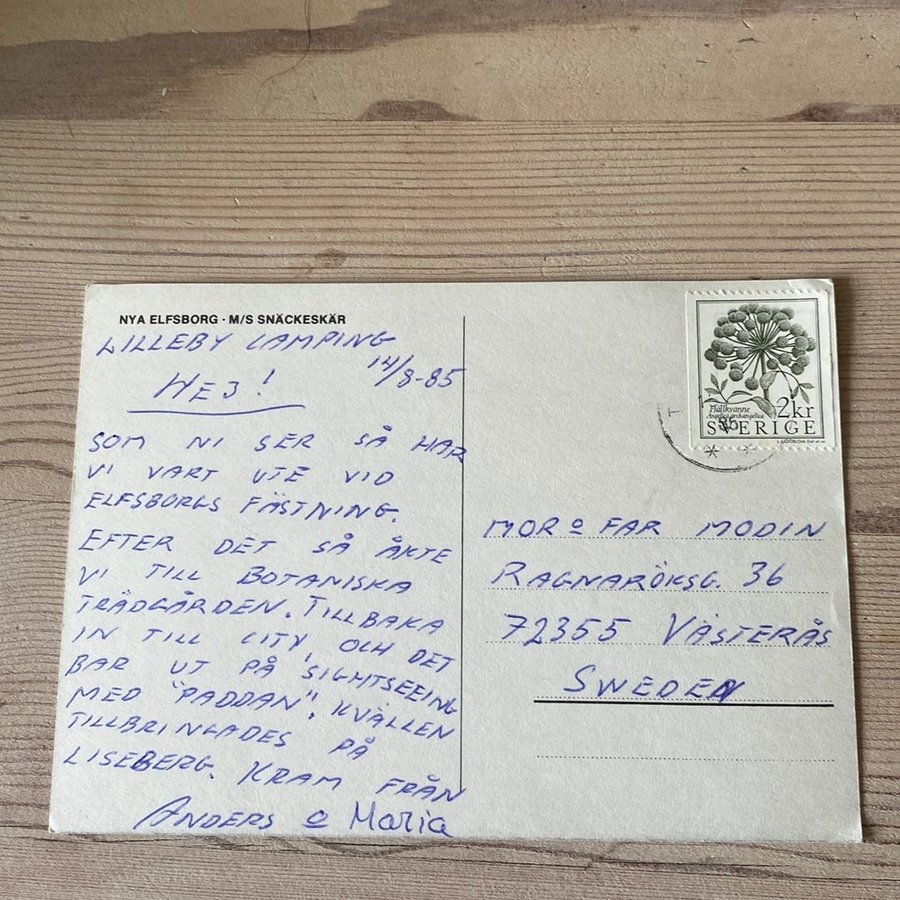 NYA ELFSBORG · M/S SNÄCKESKÄR
LILLEBY CAMPING
14/8-85
HEJ!
SOM NI SER SÅ HAR
VI VART UTE VID
ELFSBORGS FÄSTNING.
EFTER DET SÅ ÅKTE
VI TILL BOTANISKA
TRÄDGÅRDEN. TILLBAKA
IN TILL CITY, OCH DET
BAR UT PÅ SIGHTSEEING
MED "PADDAN". KVÄLLEN
TILLBRINGADES PÅ
LISEBERG. KRAM FRÅN
ANDERS o Maria
Fjällkvanne
Angelica archangelica
2kr
SVERIGE
MOR o FAR MODIN
RAGNARÖKSG. 36
72355 VÄSTERÅS
SWEDEN